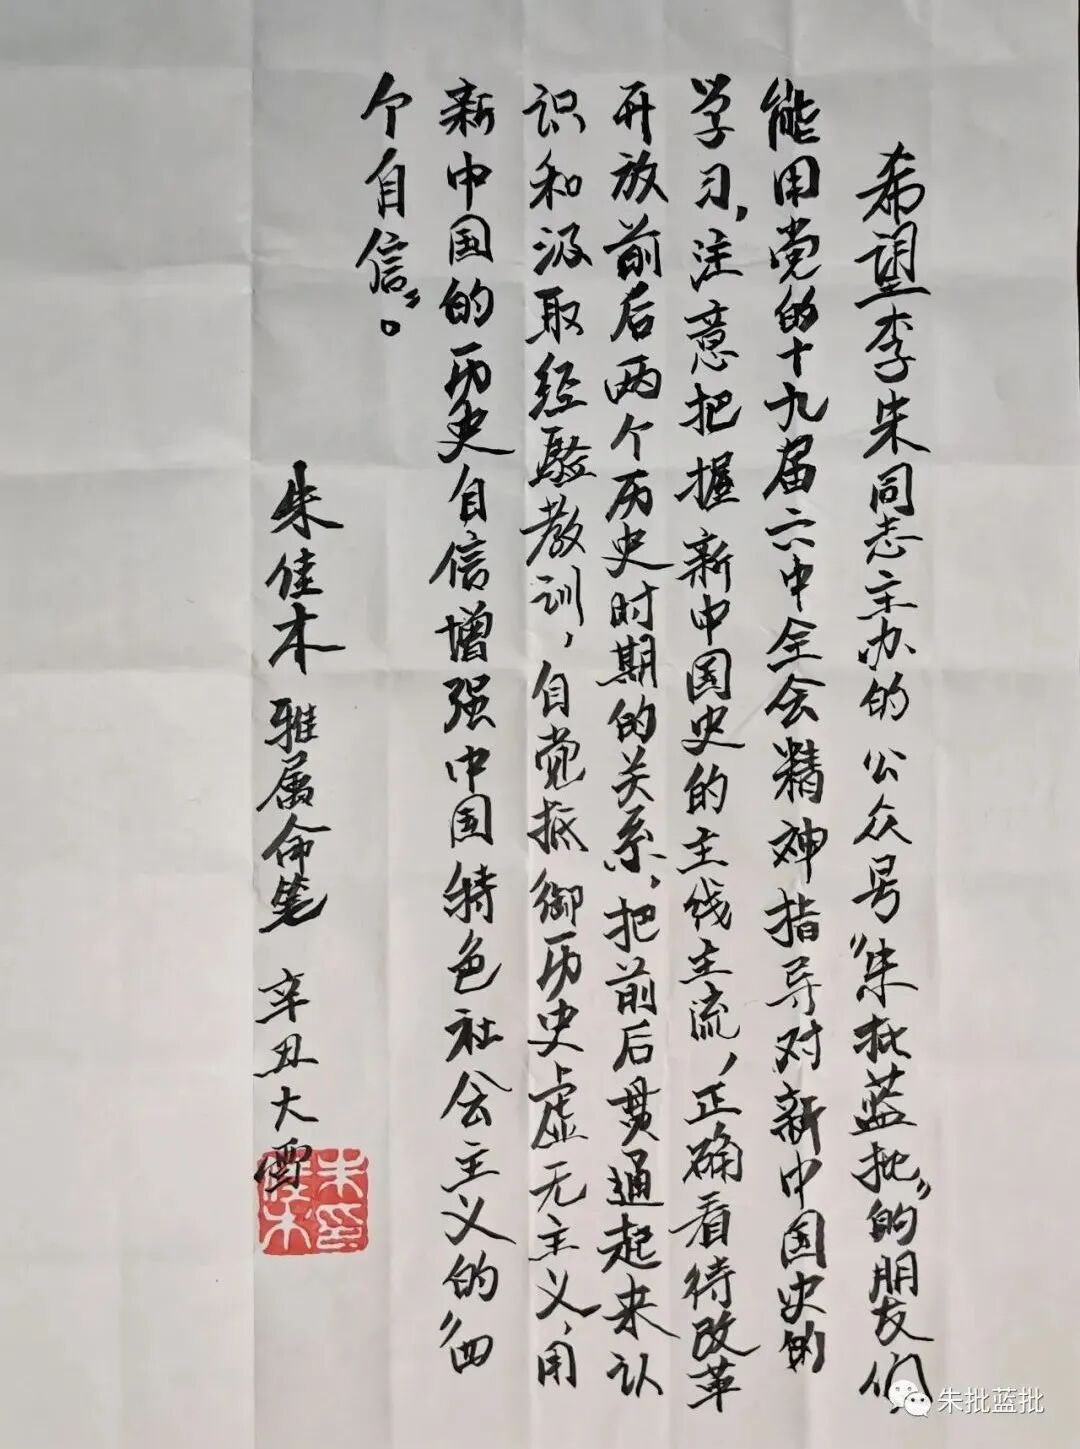 希望李朱同志主办的公众号“朱批蓝批”的朋友们
能用党的十九届六中全会精神指导对新中国史的
学习，注意把握新中国史的主线主流，正确看待改革
开放前后两个历史时期的关系，把前后贯通起来认
识和汲取经验教训，自觉抵御历史虚无主义，用
新中国的历史自信增强中国特色社会主义的“四
个自信”。
朱佳木 雅属命笔 辛丑大雪
朱佳木印
朱批蓝批